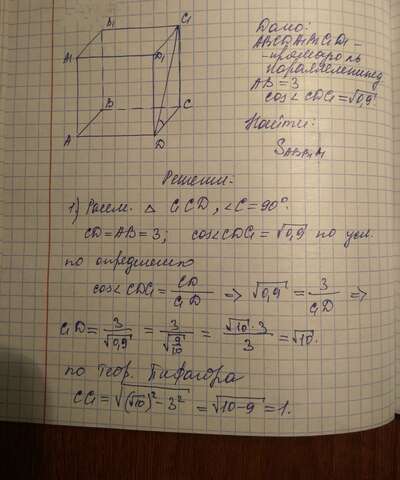 B₁
C₁
A₁
D₁
B
C
A
D
Дано:
ABCDA₁B₁C₁D₁ –
- прямоуголь
параллелепипед
AB = 3
cos∠CDC₁ = √0,9
Найти:
S
Решение:
1) Рассм. △ C₁CD, ∠C = 90°.
CD = AB = 3; cos∠CDC₁ = √0,9 по усл.
по определению
cos∠CDC₁ = CD/C₁D => √0,9 = 3/C₁D =>
C₁D = 3/√0,9 = 3/√(9/10) = √10 · 3/3 = √10.
по теор. Пифагора
CC₁ = √((√10)² - 3²) = √(10 - 9) = 1.